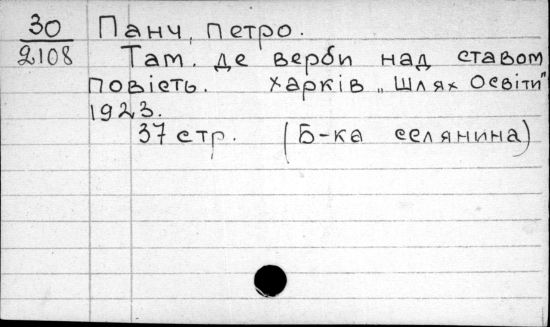 30 Панч, петро.
2108 Там. де верби над ставом
повість. Харків „Шлях Освіти"
1923.
37 стр. (Б-ка селянина)